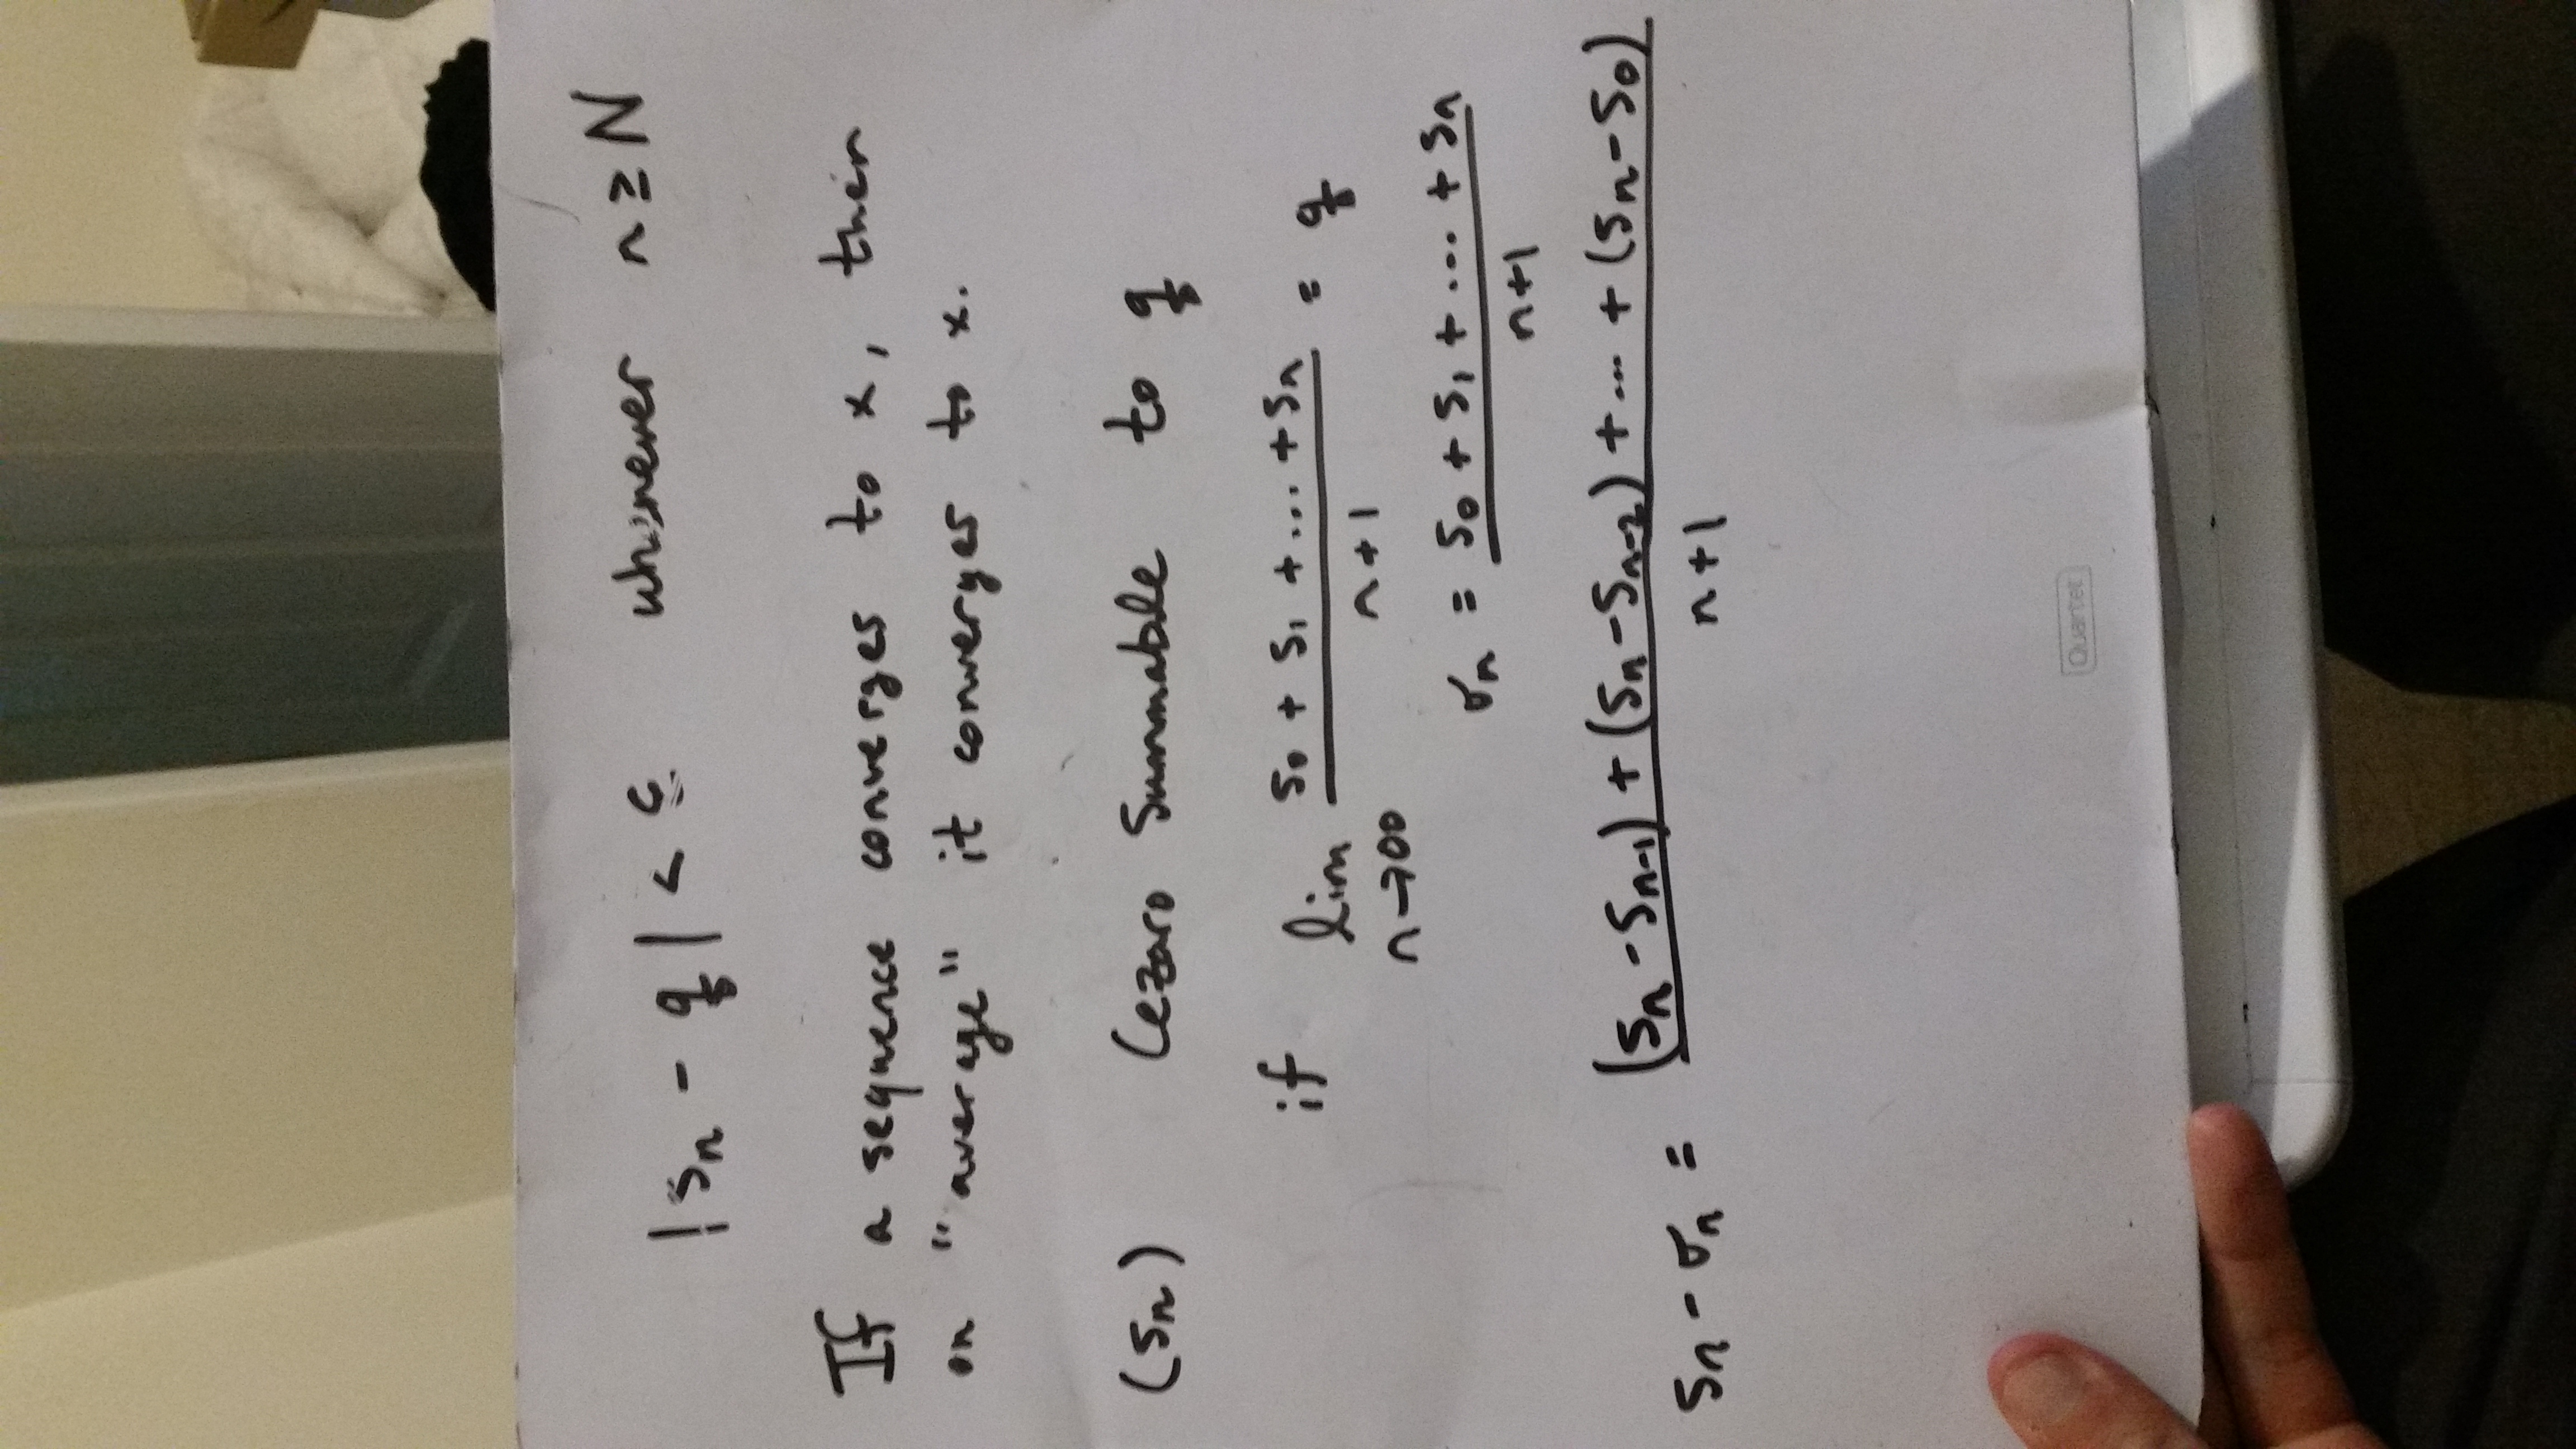 |sₙ - q| < ε whenever n ≥ N
If a sequence converges to x, then
on "average" it converges to x.
(sₙ) Cezaro Summable to q
if lim n→∞ (s₀ + s₁ + ... + sₙ)/(n+1) = q
σₙ = (s₀ + s₁ + ... + sₙ)/(n+1)
sₙ - σₙ = ((sₙ - sₙ₋₁) + (sₙ - sₙ₋₂) + ... + (sₙ - s₀))/(n+1)
Quartet